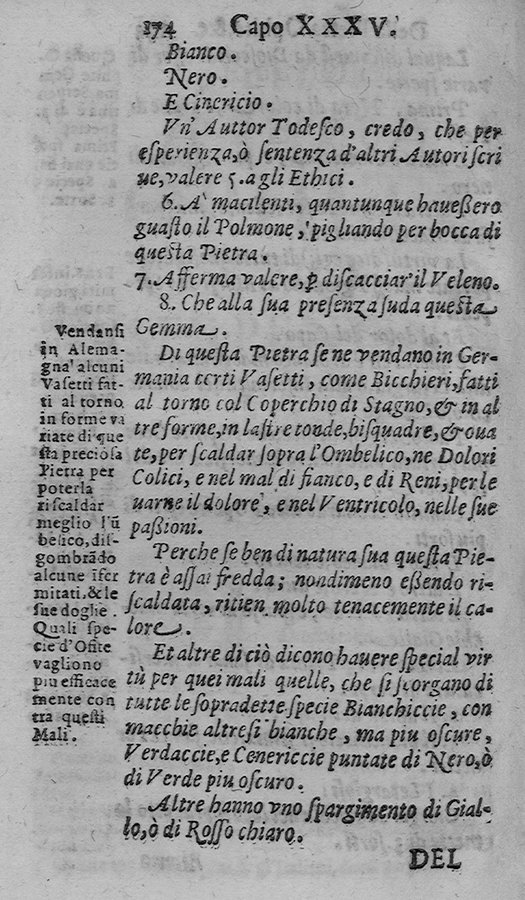 174 Capo XXXV.
Bianco.
Nero.
E Cinericio.
Vn' Auttor Todeſco, credo, che per
eſperienza,ò ſentenza d'altri Autori ſcri
ue,valere 5.agli Ethici.
6. A' macilenti, quantunque haueßero
guaſto il Polmone, pigliando per bocca di
queſta Pietra.
7. Afferma valere, ꝑ diſcacciar'il Veleno.
8. Che alla ſua preſenza ſuda queſta
Gemma.
Di queſta Pietra ſe ne vendano in Ger-
mania certi Vaſetti, come Bicchieri,fatti
al torno col Coperchio di Stagno,& in al
tre forme,in laſtre tonde,biſquadre,& oua
te,per ſcaldar ſopra l'Ombelico,ne Dolori
Colici, e nel mal di fianco, e di Reni,per le
uarne il dolore, e nel Ventricolo, nelle ſue
paßioni.
Perche ſe ben di natura ſua queſta Pie-
tra è aſſai fredda; nondimeno eßendo ri-
ſcaldata, ritien molto tenacemente il ca-
lore.
Et altre di ciò dicono hauere ſpecial vir
tù per quei mali quelle, che ſi ſcorgano di
tutte le ſopradette ſpecie Bianchiccie, con
macchie altresì bianche, ma piu oſcure,
Verdaccie,e Cenericcie puntate di Nero,ò
di Verde piu oſcuro.
Altre hanno vno ſpargimento di Gial-
lo,ò di Roſſo chiaro.
DEL
Vendanſi
in Alema-
gna' alcuni
Vaſetti fat-
ti al torno
in forme va
riate di que
ſta precioſa
Pietra per
poterla
riſcaldar
meglio l'ū
belico,diſ-
gombrādo
alcune iſer
mitati,& le
ſue doglie.
Quali ſpe-
cie d'Ofite
vagliono
piu efficace
mente con
tra queſti
Mali.